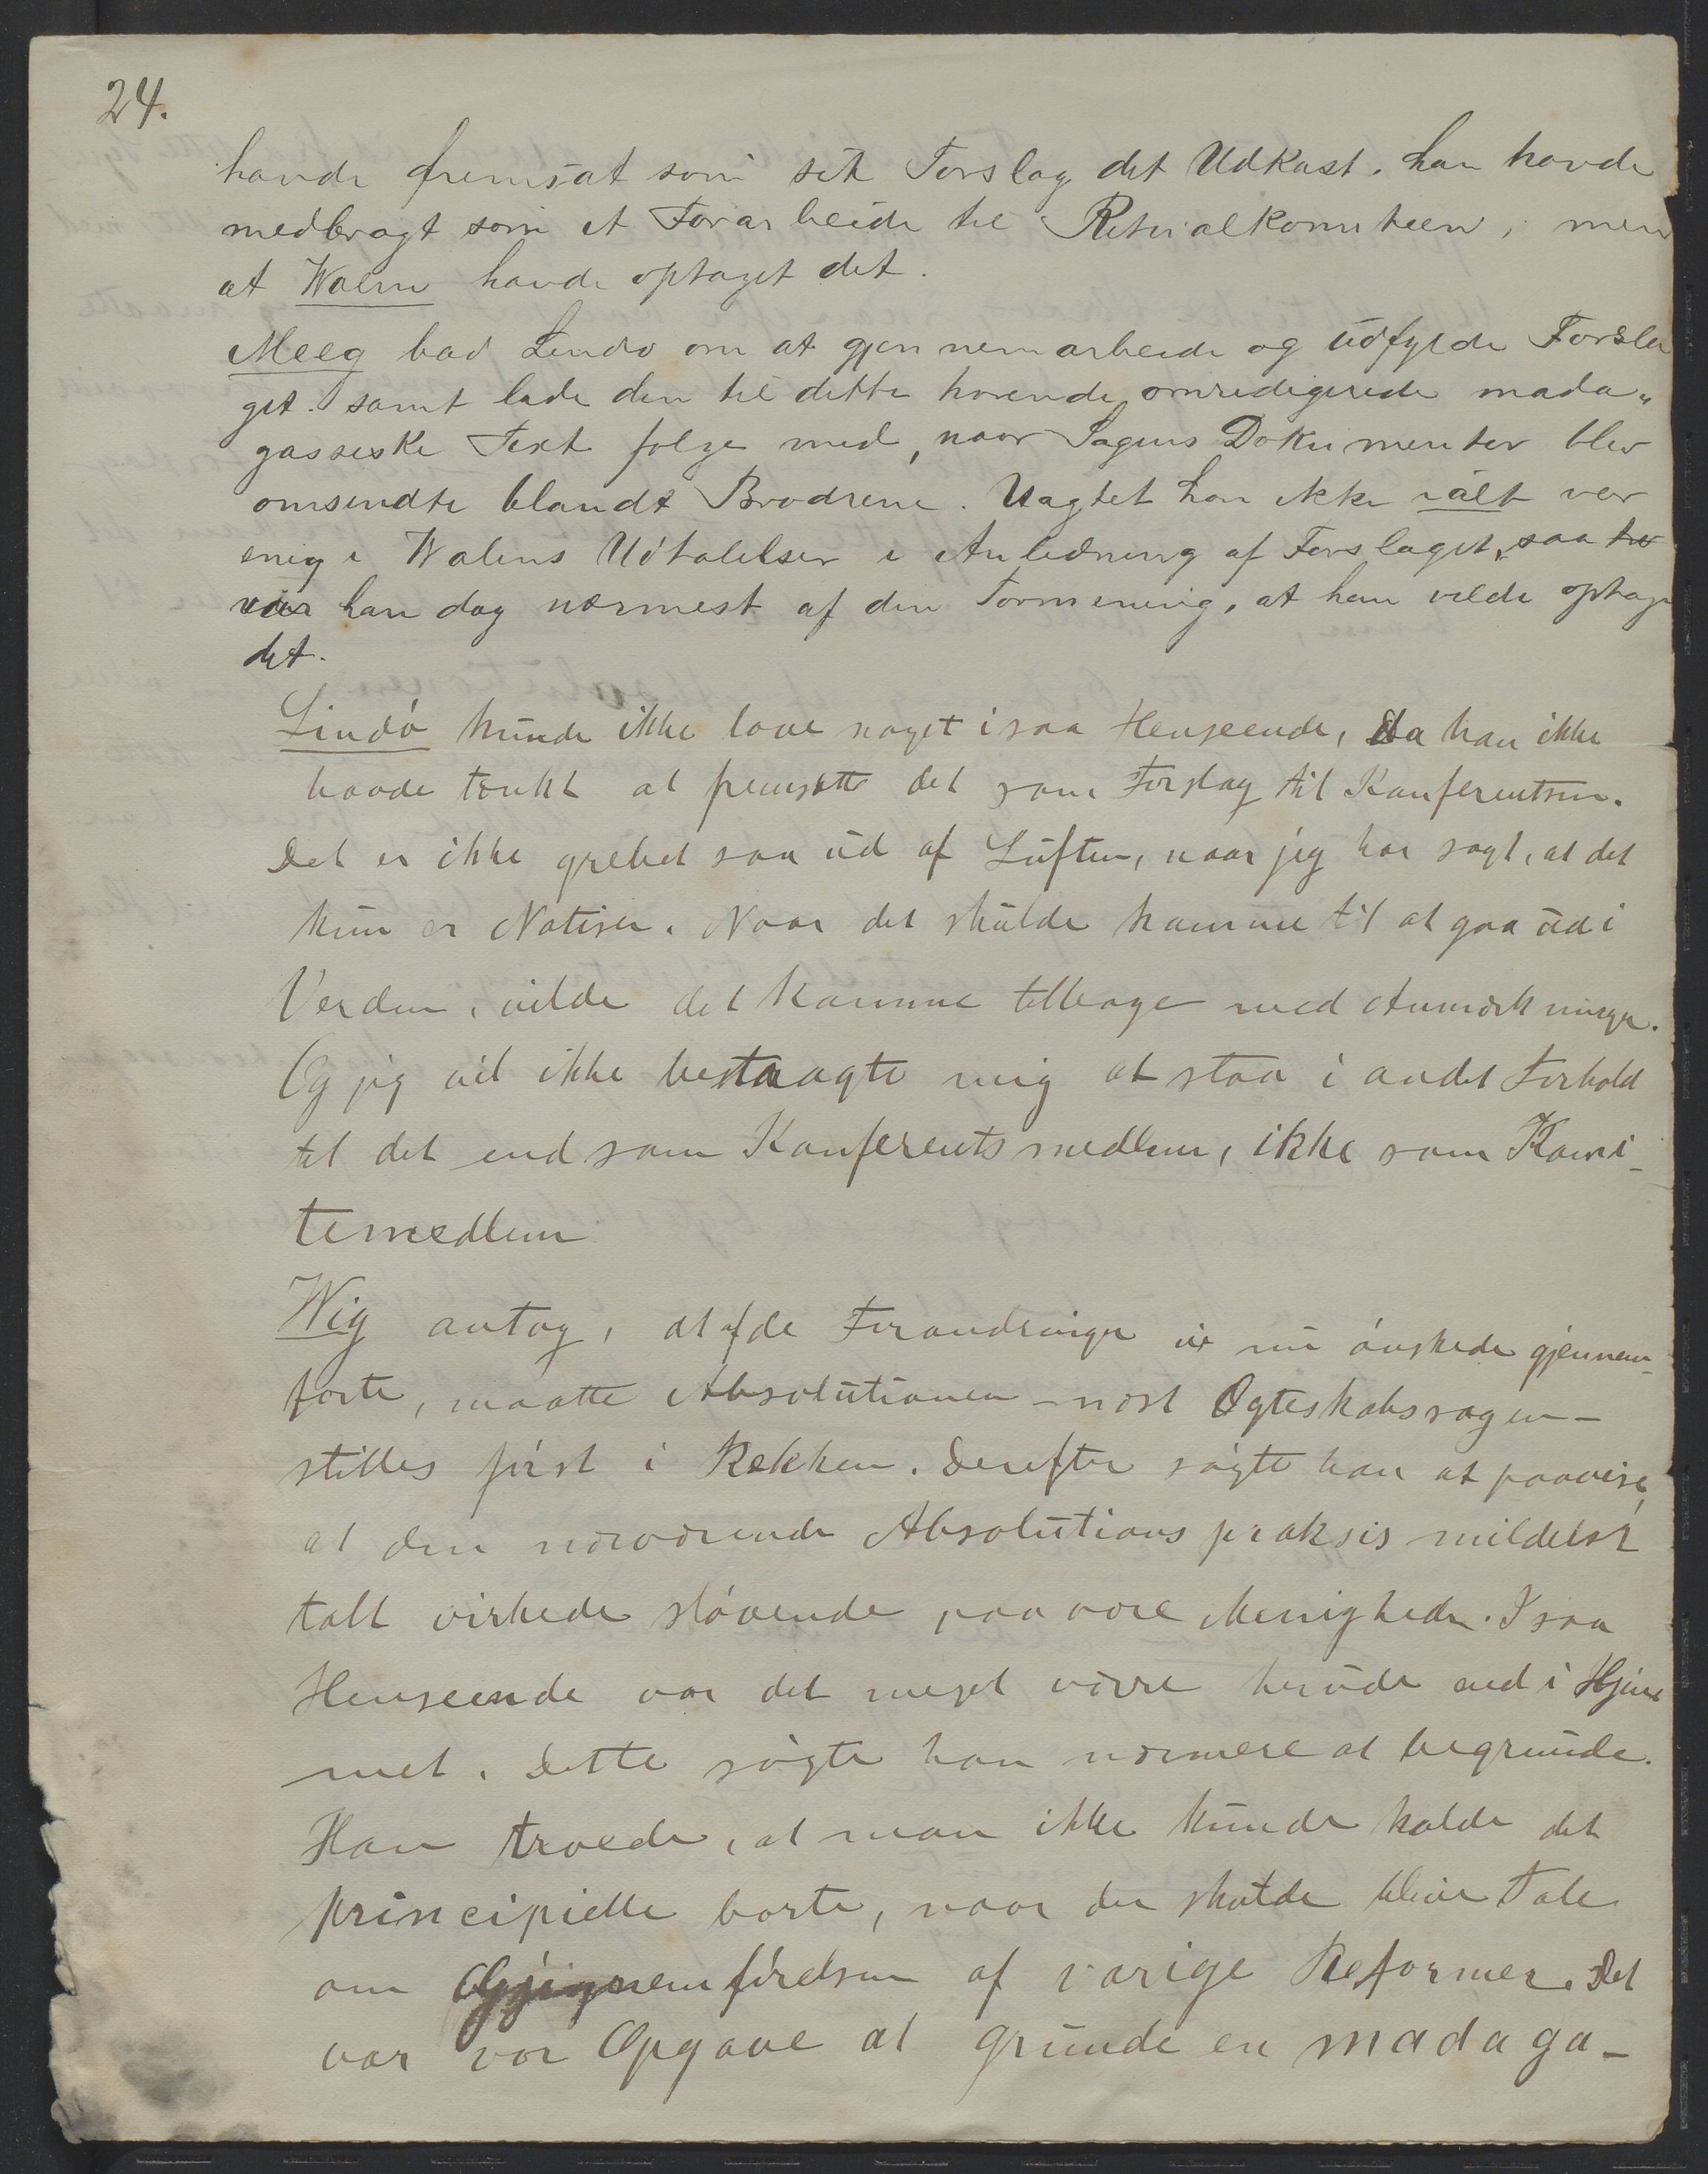 24.
havde fremsat som sit Forslag det Udkast. han havde
medbragt som et Forarbeide til Ritualkomiteen, men
at Walen havde optaget det.
Meeg bad Lindø om at gjennemarbeide og udfylde Forsla
get. samt lade den til dette hørende omredigerede mada„
gassiske Text følge med, naar Sagens Dokumenter blev
omsendte blandt Brødrene. Uagtet han ikke ialt var
enig i Walens Udtalelser i Anledning af Forslaget, saa
var han dog nærmest af den Formening, at han vilde optage
det.
Lindø kunde ikke love noget i saa Henseende, da han ikke
havde tænkt at fremsætte det som Forslag til Konferentsen.
Det er ikke grebet saa ud af Luften, naar jeg har sagt, at det
kun er Notiser. Naar det skulde komme til at gaa ud i
Verden, vilde det komme tilbage med Anmærkninger.
Og jeg vil ikke betragte mig at staa i andet Forhold
til det end som Konferentsmedlem, ikke som Komi-
temedlem
Wig antog, at af de Forandringer vi nu ønskede gjennem-
førte, maatte Absolutionen - næst Ægteskabssagen -
stilles først i Rækken. Derefter søgte han at paavise,
at den nærværende Absolutionspraksis mildelst
talt virkede sløvende paa vore Menigheder. I saa
Henseende var det meget værre herude end i Hjem
met. Dette søgte han nærmere at begrunde.
Han troede, at man ikke kunde holde det
principielle borte, naar der skulde blive Tale
om Gjennemførelsen af varige Reformer. Det
var vor Opgave at grunde en madaga-